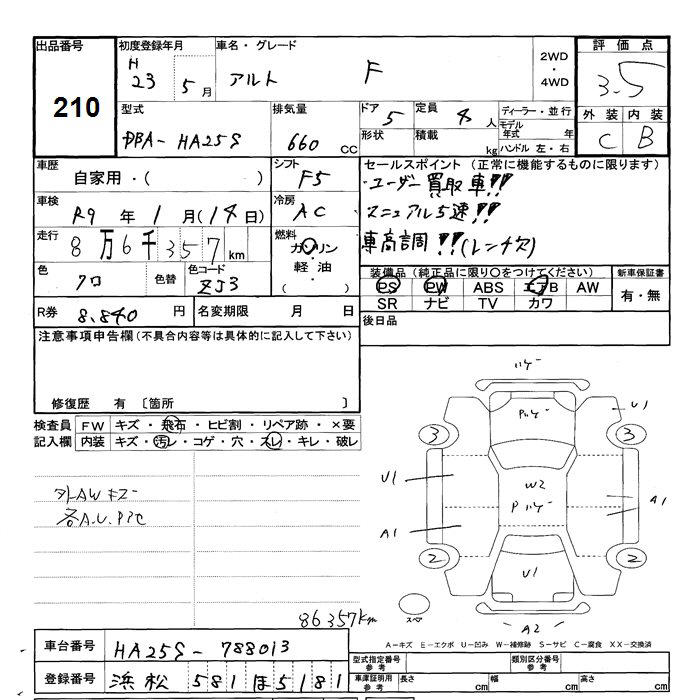 出品番号 初度登録年月 車名・グレード 評価点
210
H 23 5月 アルト F 2WD・4WD 3.5
型式 排気量 ドア 5 定員 4人 ディーラー・並行 外装 内装
DBA-HA25S 660cc 形状 積載 kg モデル年式 年 ハンドル 左・右 C B
車歴 シフト セールスポイント (正常に機能するものに限ります)
自家用・( ) F5 ・ユーザー買取車!!
車検 冷房 マニュアル5速!!
R9年1月(14日) AC 車高調!!(レンチ欠)
走行 燃料
8万6千357km ガソリン・軽油・( )
色 色替 色コード 装備品 (純正品に限り○をつけてください) 新車保証書
クロ ZJ3 PS PW ABS エアB AW 有・無
SR ナビ TV カワ
R券 8,840円 名変期限 月 日 後日品
注意事項申告欄(不具合内容等は具体的に記入して下さい)
修復歴 有 〔箇所
検査員記入欄 FW キズ・飛石・ヒビ割・リペア跡・×要
内装 キズ・汚レ・コゲ・穴・スレ・キレ・破レ
ハゲ
Pハゲ
U1
3 3
U1
W2
Pハゲ
A1
A1
2 2
U1
スペア
A2
外AWキズ
各A.U.P
86357km
A-キズ E-エクボ U-凹み W-補修跡 S-サビ C-腐食 XX-交換済
車台番号 HA25S-788013
登録番号 浜松 581 ほ 5181
型式指定番号 参考 類別区分番号 参考
車庫証明用 参考 長さ cm 幅 cm 高さ cm